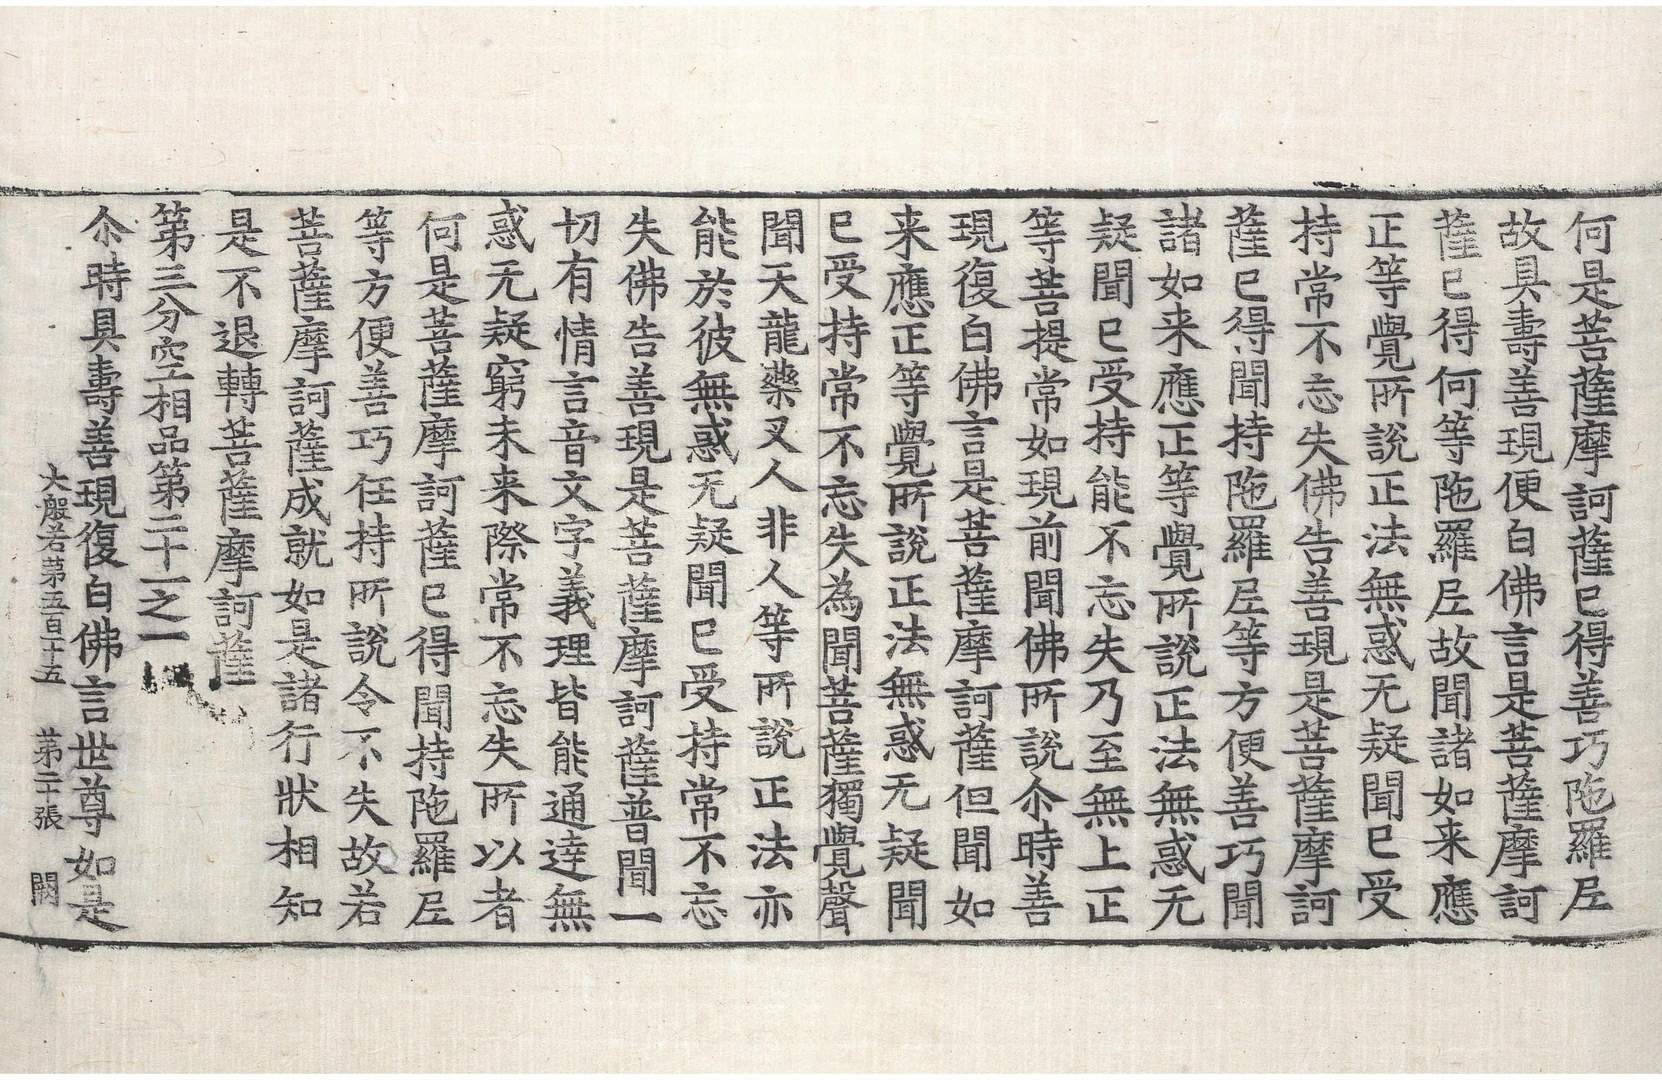 何是菩薩摩訶薩已得善巧陁羅𡰱
故具壽善現便白佛言是菩薩摩訶
薩已得何等陁羅𡰱故聞諸如来應
正等覺所說正法無惑无疑聞已受
持常不忘失佛告善現是菩薩摩訶
薩已得聞持陁羅𡰱等方便善巧聞
諸如来應正等覺所說正法無惑无
疑聞已受持能不忘失乃至無上正
等菩提常如現前聞佛所說尒時善
現復白佛言是菩薩摩訶薩但聞如
来應正等覺所說正法無惑无疑聞
已受持常不忘失為聞菩薩獨覺聲
聞天龍藥叉人非人等所說正法亦
能於彼無惑无疑聞已受持常不忘
失佛告善現是菩薩摩訶薩普聞一
切有情言音文字義理皆能通達無
惑无疑窮未来際常不忘失所以者
何是菩薩摩訶薩已得聞持陁羅𡰱
等方便善巧任持所說令不失故若
菩薩摩訶薩成就如是諸行狀相知
是不退轉菩薩摩訶薩
第三分空相品第二十一之一
尒時具壽善現復白佛言世尊如是
大般若第五百十五 第二十張 闕